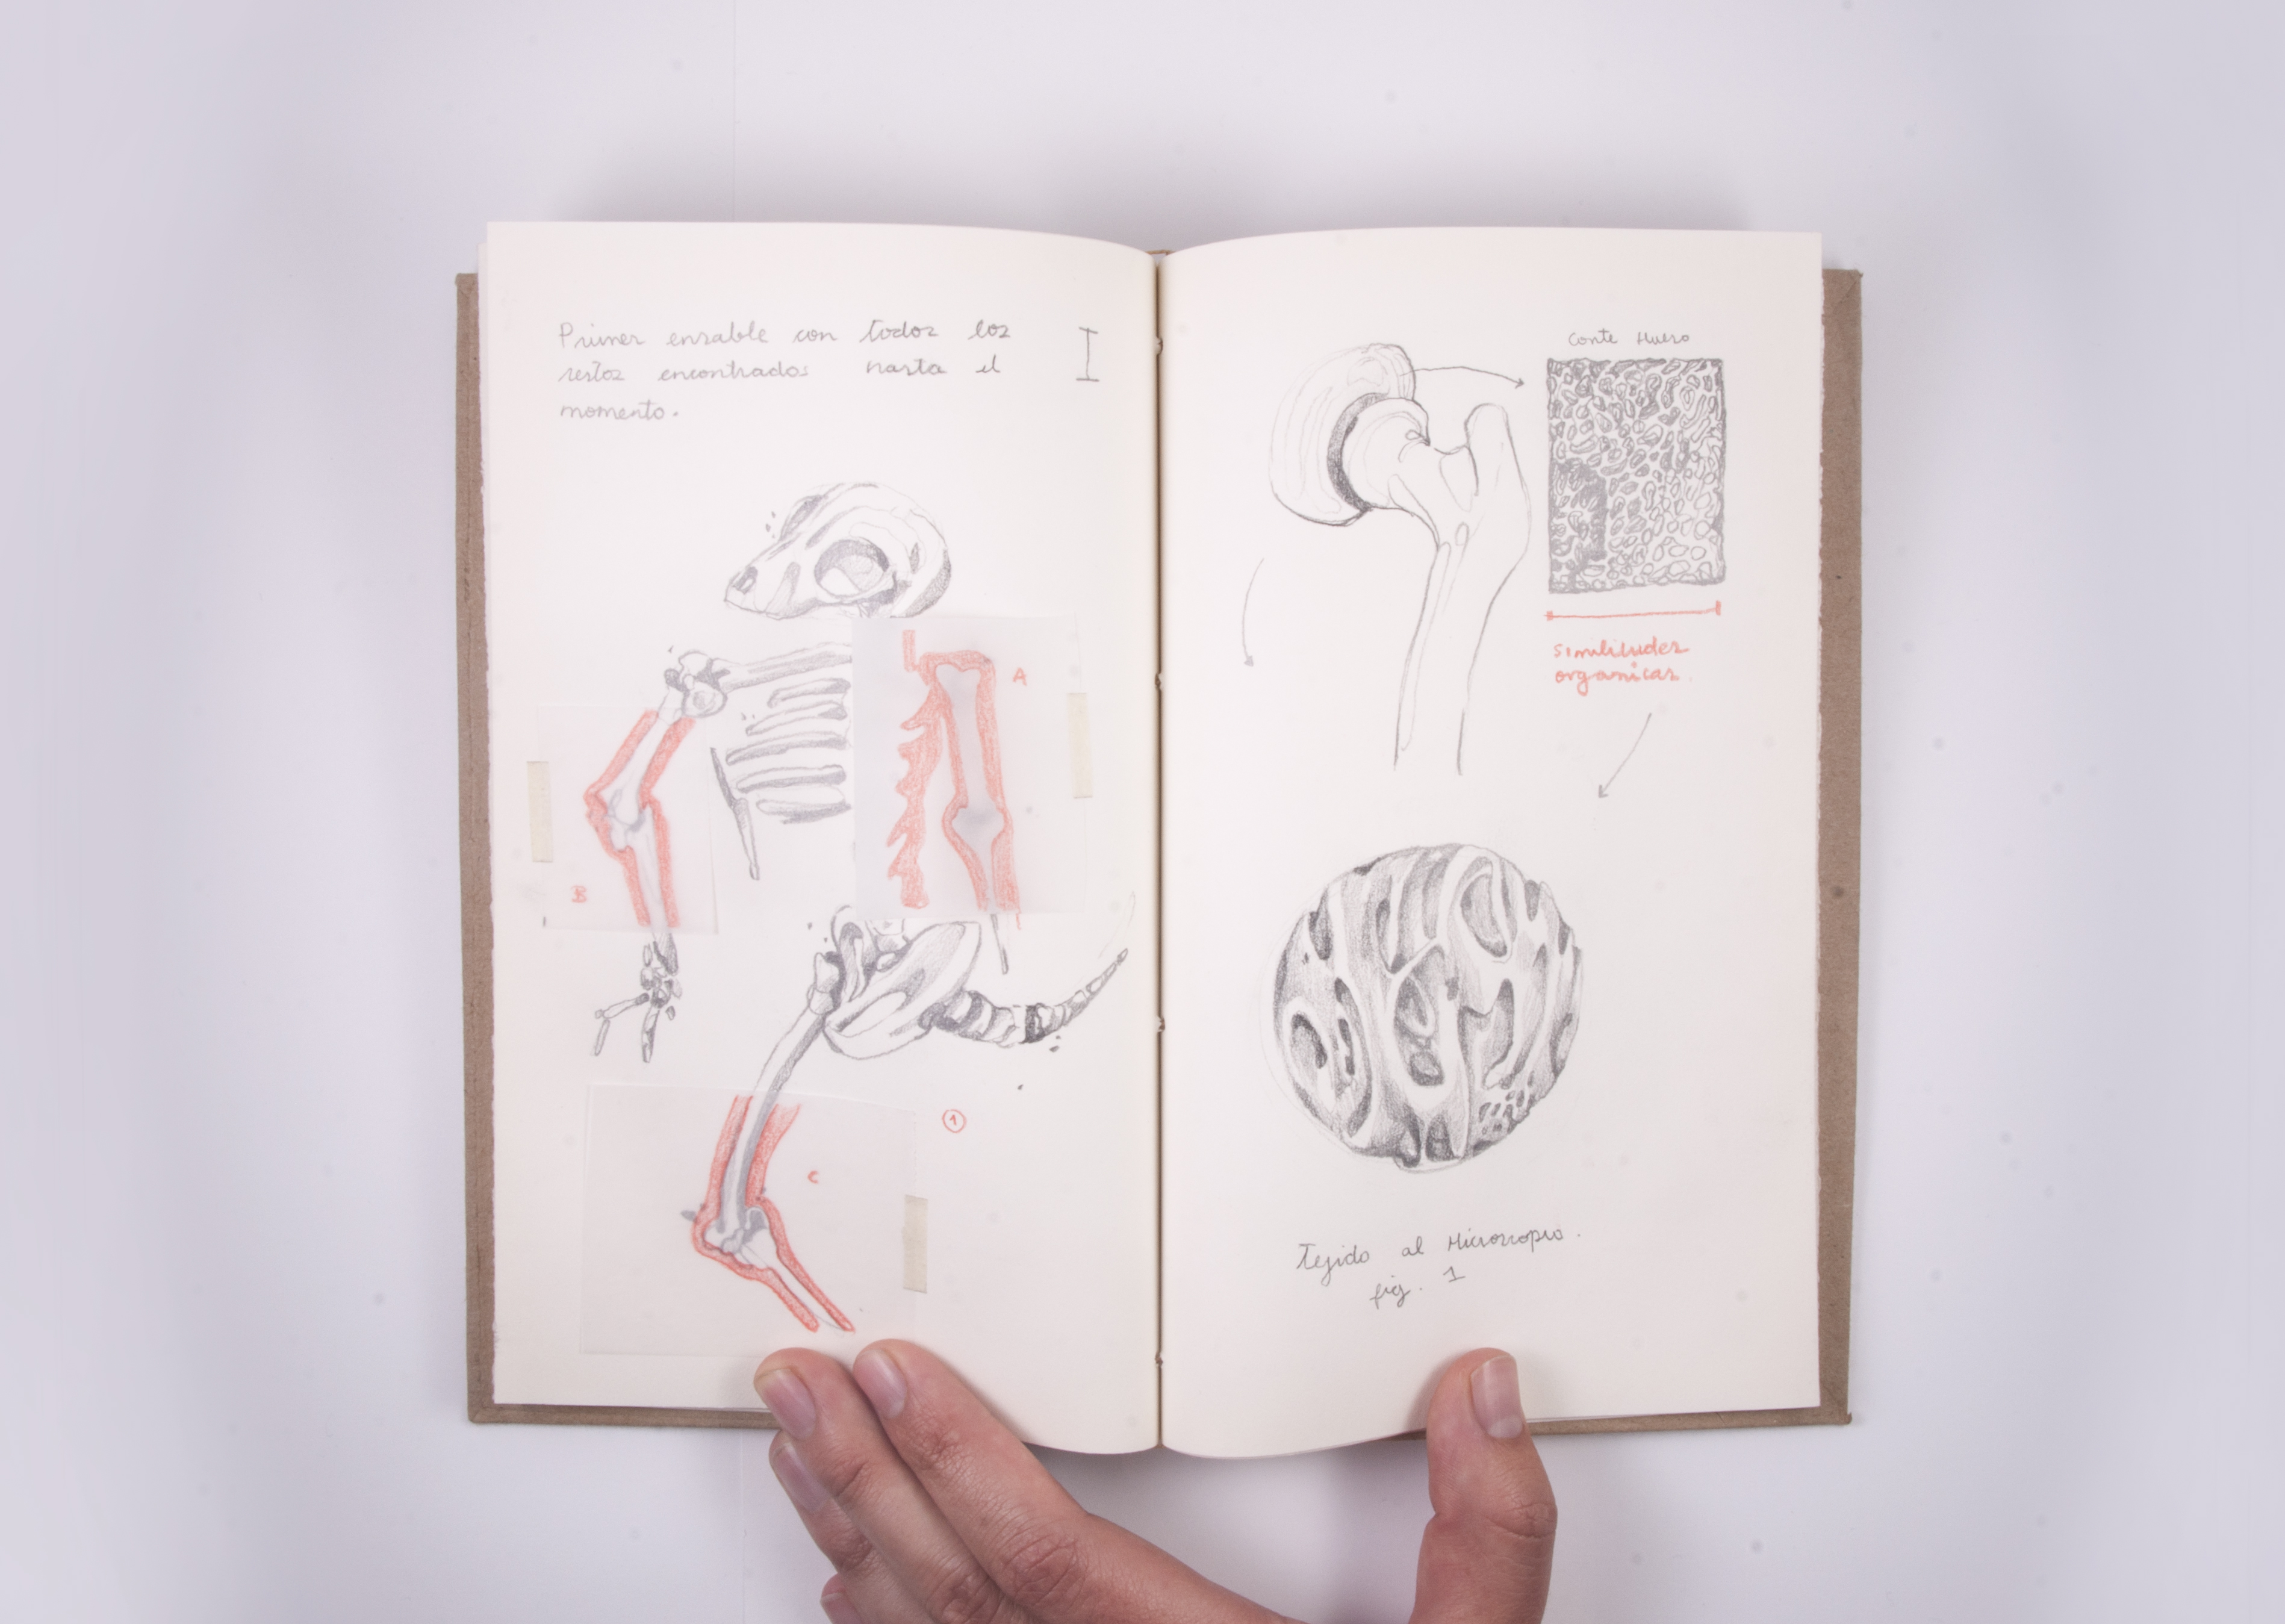 Primer ensable con todos los
restos encontrados hasta el
momento.
I
A
B
C
1
Corte Hueso
similitudes
organicas.
Tejido al Microscopio.
fig. 1